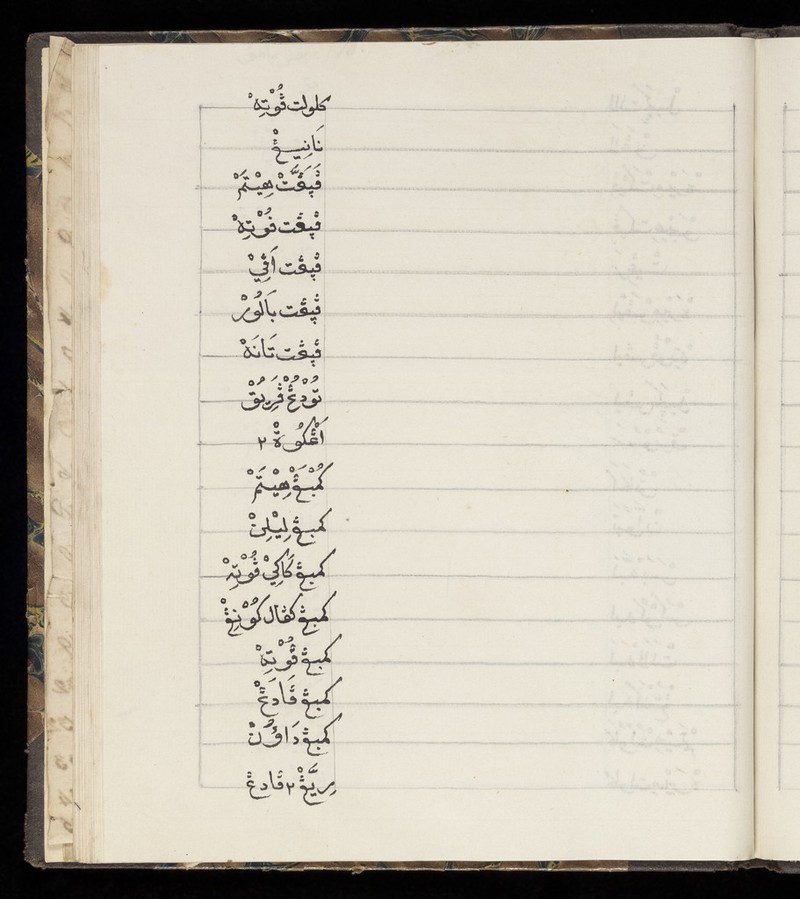 كلولت ڤُوْتِهْ
نَانِيڠْ
ڤِڽَڠَّتْ هِيْتَمْ
ڤڽڠت ڤُوْتِهْ
ڤڽڠت اَڤِيْ
ڤڽڠت بَالُوُرْ
ڤڽڠت تَانَهْ
تُوْدُڠْ ڤَرِيُوْقْ
اَڠْكُوڠْ ٢
كُمْبَڠْ هِيْتَمْ
كمبڠ لِيْلِنْ
كمبڠ كَاكِيْ ڤُوْتِهْ
كمبڠ كڤال كُوْنِڠْ
كمبڠ ڤُوْتِهْ
كمبڠ ڤَادَڠْ
كمبڠ دَاؤُنْ
رِيَّڠْ ٢ ڤادڠ